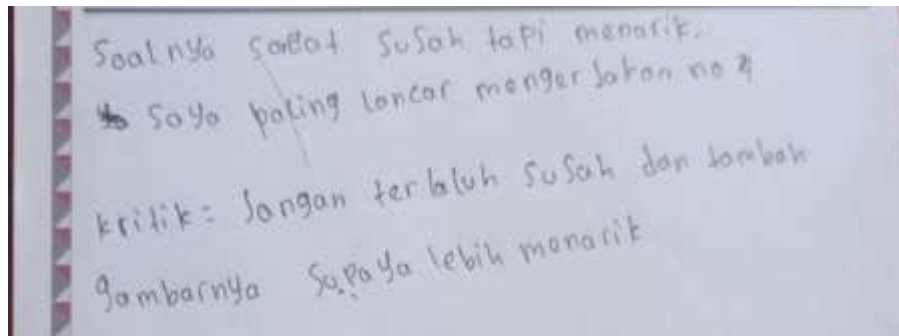 Soalnya sangat susah tapi menarik.
Saya paling lancar mengerjakan no 4
kritik = Jangan terlaluh susah dan tambah
gambarnya supaya lebih menarik